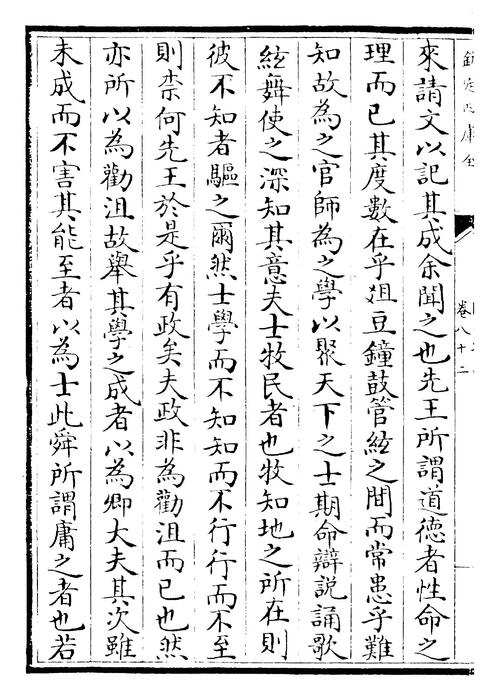 欽定四庫全
卷八十二
來請文以記其成余聞之也先王所謂道徳者性命之
理而已其度數在乎爼豆鐘鼓管絃之間而常患乎難
知故為之官師為之學以聚天下之士期命辯説誦歌
絃舞使之深知其意夫士牧民者也牧知地之所在則
彼不知者驅之爾然士學而不知知而不行行而不至
則柰何先王於是乎有政矣夫政非為勸沮而已也然
亦所以為勸沮故舉其學之成者以為卿大夫其次雖
未成而不害其能至者以為士此舜所謂庸之者也若